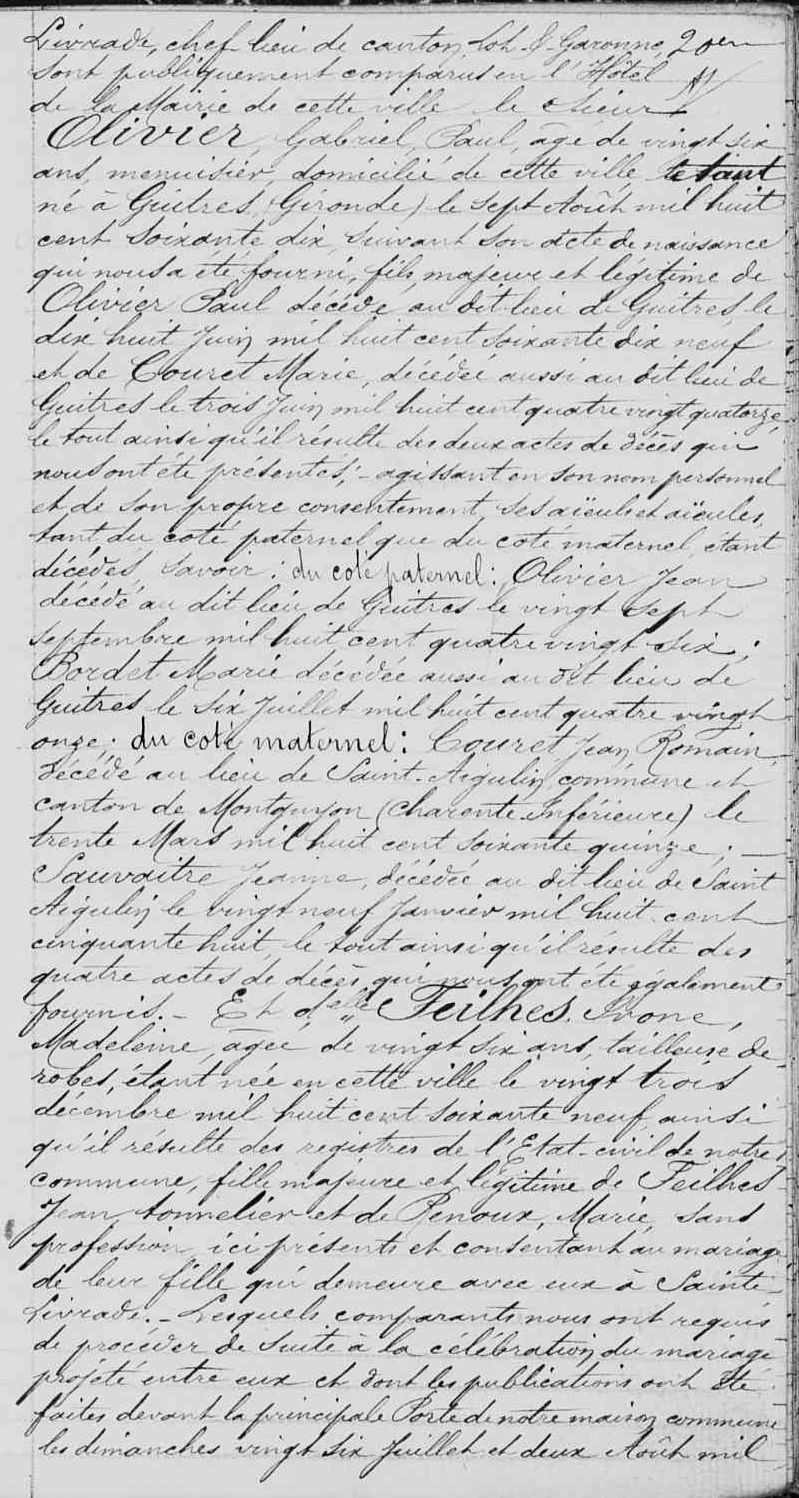 Livrade, chef lieu de canton, Lot & Garonne,
sont publiquement comparus en l'Hôtel
de la Mairie de cette ville le Sieur
Olivier, Gabriel, Paul, âgé de vingt six
ans, menuisier, domicilié de cette ville,
né à Guitres (Gironde) le sept Août mil huit
cent soixante dix, suivant son acte de naissance
qui nous a été fourni, fils majeur et légitime de
Olivier Paul décédé au dit lieu de Guitres le
dix huit Juin mil huit cent soixante dix neuf
et de Couret Marie, décédée aussi au dit lieu de
Guitres le trois Juin mil huit cent quatre vingt quatorze,
le tout ainsi qu'il résulte des deux actes de décès qui
nous ont été présentés; - agissant en son nom personnel
et de son propre consentement, ses aïeuls et aïeules,
tant du coté paternel que du coté maternel, étant
décédés, savoir: du coté paternel: Olivier Jean
décédé au dit lieu de Guitres le vingt sept
septembre mil huit cent quatre vingt six;
Bordet Marie décédée aussi au dit lieu de
Guitres le six Juillet mil huit cent quatre vingt
onze; du coté maternel: Couret, Jean Romain,
décédé au lieu de Saint-Aigulin, commune et
canton de Montguyon (Charente Inférieure) le
trente Mars mil huit cent soixante quinze; -
Sauvaitre Jeanne, décédée au dit lieu de Saint
Aigulin le vingt neuf Janvier mil huit cent
cinquante huit, le tout ainsi qu'il résulte des
quatre actes de décès qui nous ont été également
fournis. - Et delle Feilhes. Ivone,
Madeleine, âgée de vingt six ans, tailleuse de
robes, étant née en cette ville le vingt trois
décembre mil huit cent soixante neuf, ainsi
qu'il résulte des registres de l'Etat-civil de notre
commune, fille majeure et légitime de Feilhes
Jean, tonnelier et de Renoux, Marie, sans
profession, ici présents et consentant au mariage
de leur fille qui demeure avec eux à Sainte-
Livrade. - Lesquels comparants nous ont requis
de procéder de suite à la célébration du mariage
projeté entre eux et dont les publications ont été
faites devant la principale Porte de notre maison commune
les dimanches vingt six Juillet et deux Août mil